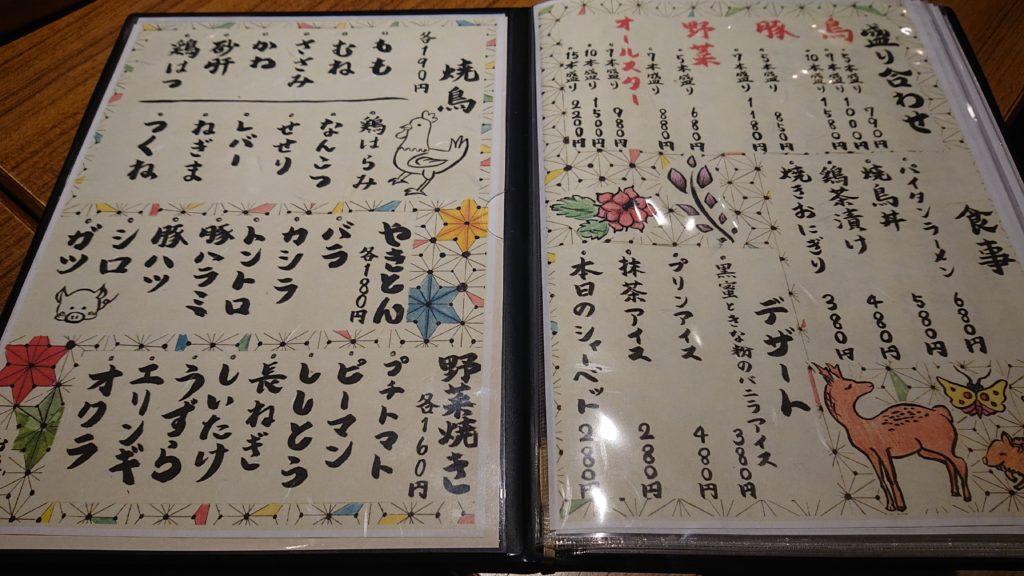 盛り合わせ
鳥
5本盛り 790円
7本盛り 1000円
10本盛り 1550円
豚
5本盛り 850円
7本盛り 1180円
野菜
5本盛り 680円
7本盛り 880円
オールスター
7本盛り 980円
10本盛り 1500円
15本盛り 2200円
食事
パイタンラーメン 680円
焼鳥丼 580円
鶏茶漬け 480円
焼きおにぎり 380円
デザート
黒蜜ときな粉のバニラアイス 380円
プリンアイス 480円
抹茶アイス 280円
本日のシャーベット 280円
焼鳥
各190円
もも
むね
ささみ
かわ
砂肝
鶏はつ
鶏はらみ
なんこつ
せせり
レバー
ねぎま
つくね
やきとん
各180円
バラ
カシラ
トントロ
豚ハラミ
豚ハツ
シロ
ガツ
野菜焼き
各160円
プチトマト
ピーマン
ししとう
長ねぎ
しいたけ
うずら
エリンギ
オクラ